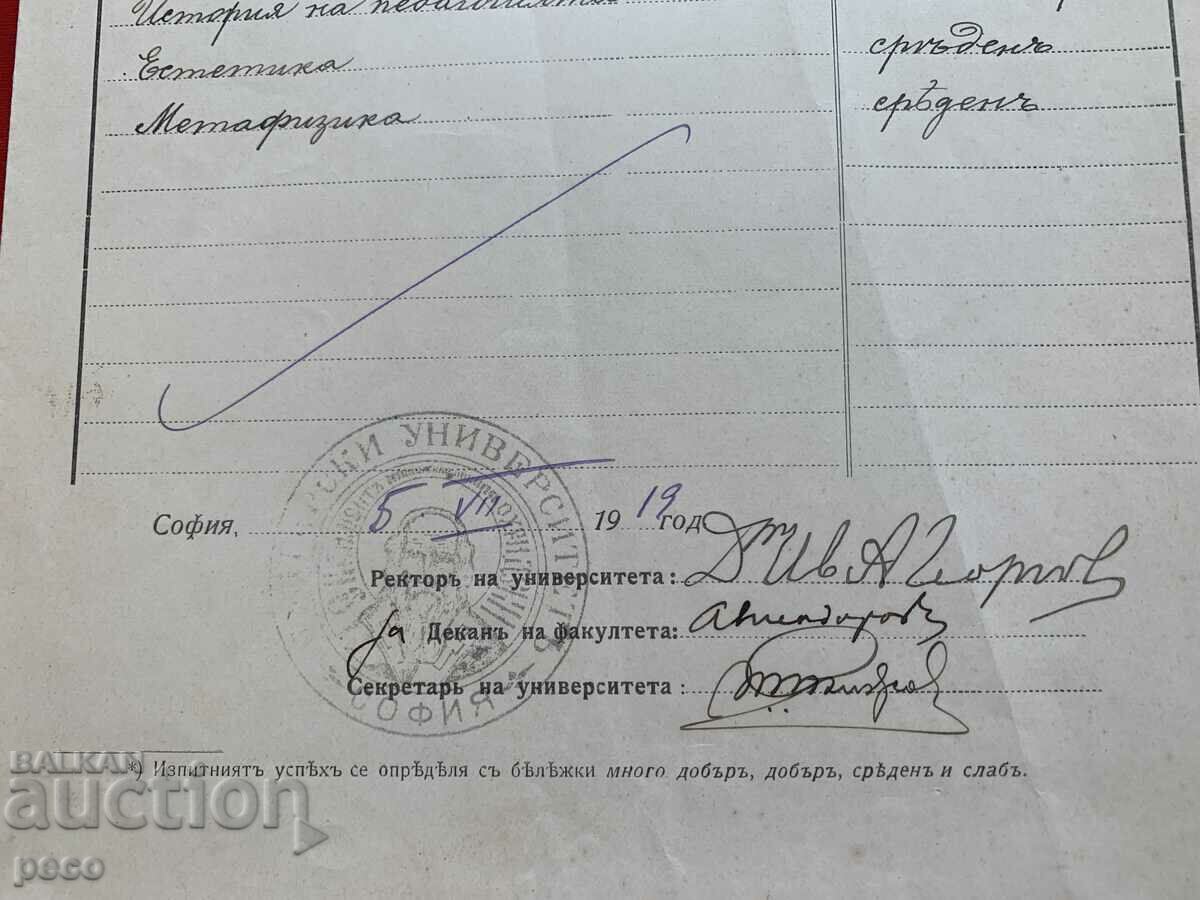 История на
Естетика срѣденъ
Метафизика срѣденъ
УНИВЕРСИТЕТЪ
СОФИЯ
София, 5 VII 1919 год
Ректоръ на университета: Д-ръ Ив А Георгов
за Деканъ на факултета:
Секретарь на университета:
*) Изпитниятъ успѣхъ се опрѣдѣля съ бѣлѣжки много добъръ, добъръ, срѣденъ и слабъ.
BALKAN
auction
peco